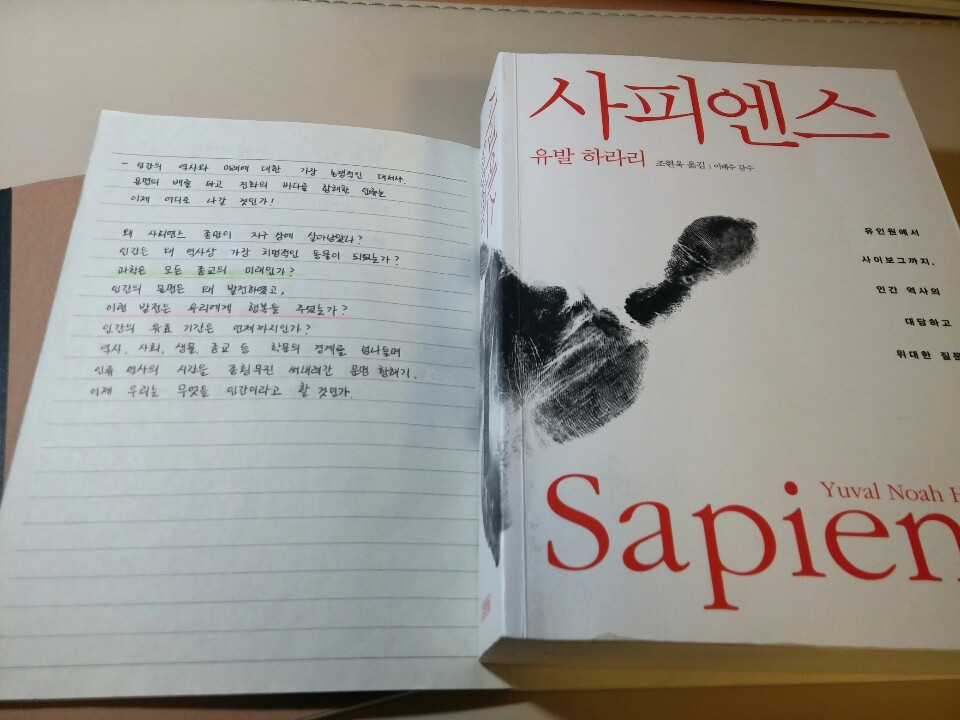 - 인간의 역사와 미래에 대한 가장 논쟁적인 대서사.
문명의 배를 타고 진화의 바다를 항해한 인류는
이제 어디로 나갈 것인가!
왜 사피엔스 종만이 지구 상에 살아남았나?
인간은 왜 역사상 가장 치명적인 동물이 되었는가?
과학은 모든 종교의 미래인가?
인간의 문명은 왜 발전하였고,
이런 발전은 우리에게 행복을 주었는가?
인간의 유효 기간은 언제까지인가?
역사, 사회, 생물, 종교 등 학문의 경계를 넘나들며
인류 역사의 시간을 종횡무진 써내려간 문명 항해기.
이제 우리는 무엇을 인간이라고 할 것인가.
사피엔스
유발 하라리 조현욱 옮김 | 이태수 감수
유인원에서
사이보그까지,
인간 역사의
대담하고
위대한 질문
Yuval Noah H
Sapien